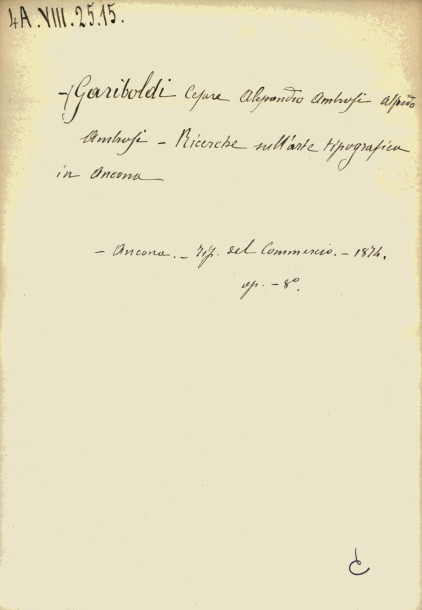 4A.VIII.25.15.
- Gariboldi Cesare Alessandro Ambrosi Alfredo
Ambrosi - Ricerche sull'arte tipografica
in Ancona
- Ancona. - Tip. del Commercio. - 1874.
op. - 8°.